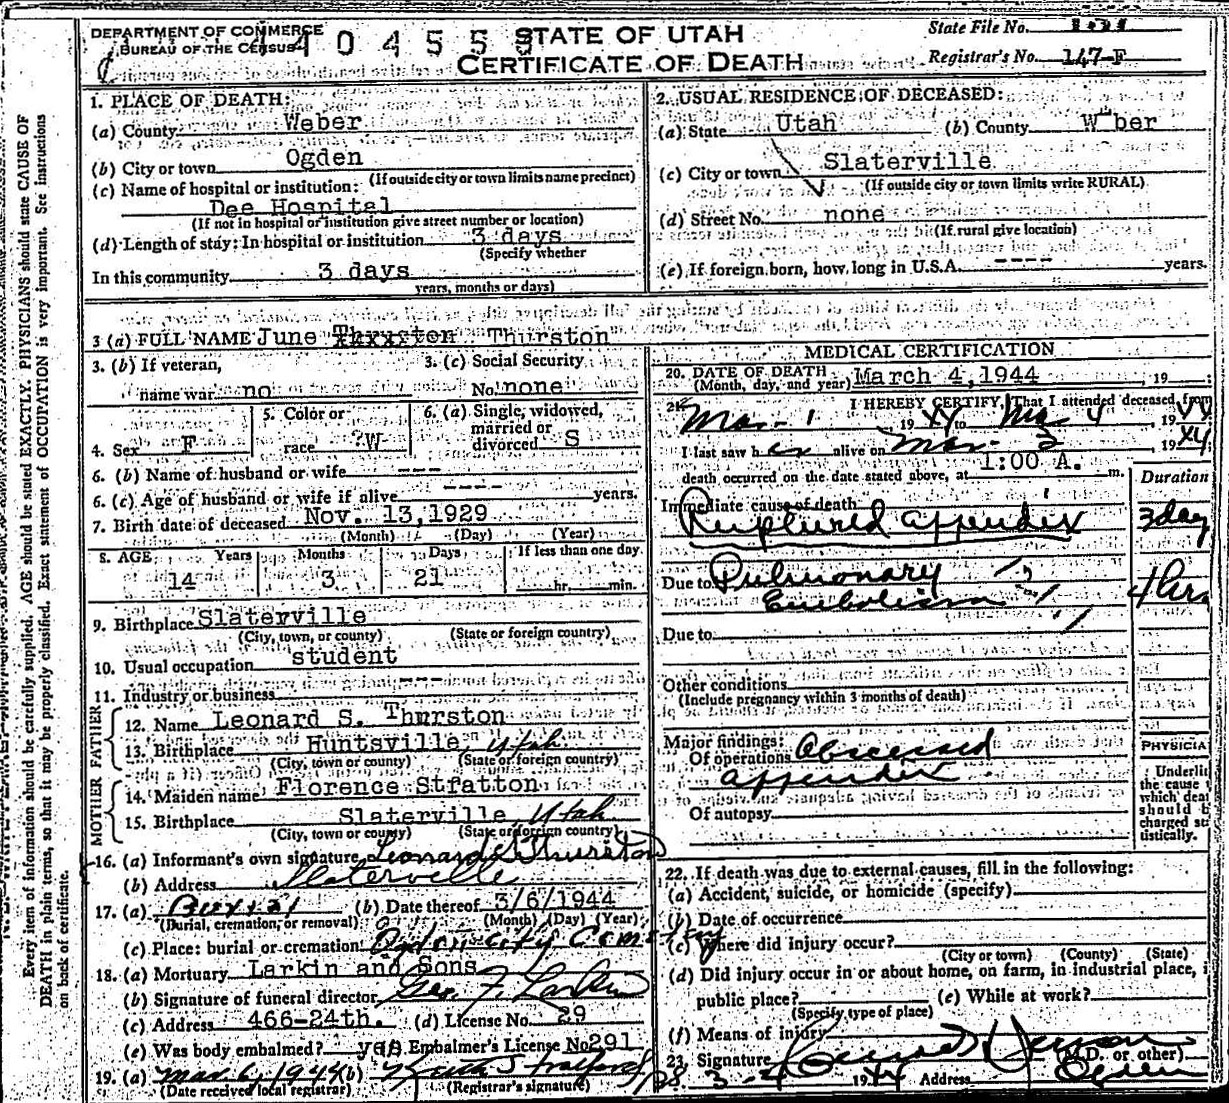 DEPARTMENT OF COMMERCE
BUREAU OF THE CENSUS
STATE OF UTAH
CERTIFICATE OF DEATH
State File No.
Registrar's No. 147-F
1. PLACE OF DEATH:
(a) County Weber
(b) City or town Ogden
(If outside city or town limits name precinct)
(c) Name of hospital or institution:
Dee Hospital
(If not in hospital or institution give street number or location)
(d) Length of stay: In hospital or institution 3 days
(Specify whether
In this community 3 days
years, months or days)
2. USUAL RESIDENCE OF DECEASED:
(a) State Utah (b) County W ber
(c) City or town Slaterville
(If outside city or town limits write RURAL)
(d) Street No. none
(If rural give location)
(e) If foreign born, how long in U.S.A. ---- years.
3 (a) FULL NAME June Thurston
3. (b) If veteran,
name war no
3. (c) Social Security
No. none
4. Sex F
5. Color or
race W
6. (a) Single, widowed,
married or
divorced S
6. (b) Name of husband or wife ---
6. (c) Age of husband or wife if alive ---- years.
7. Birth date of deceased Nov. 13, 1929
(Month) (Day) (Year)
8. AGE Years Months Days If less than one day
14 3 21 hr. min.
9. Birthplace Slaterville
(City, town, or county) (State or foreign country)
10. Usual occupation student
11. Industry or business ---
FATHER
12. Name Leonard S. Thurston
13. Birthplace Huntsville, Utah
(City, town or county) (State or foreign country)
MOTHER
14. Maiden name Florence Stratton
15. Birthplace Slaterville, Utah
(City, town or county) (State or foreign country)
16. (a) Informant's own signature Leonard S Thurston
(b) Address Slaterville
17. (a) Burial (b) Date thereof 3/6/1944
(Burial, cremation, or removal) (Month) (Day) (Year)
(c) Place: burial or cremation Ogden City Cemetery
18. (a) Mortuary Larkin and Sons
(b) Signature of funeral director Geo. F. Larkin
(c) Address 466-24th. (d) License No. 29
(e) Was body embalmed? yes Embalmer's License No 291
19. (a) Mar 6, 1944 (b)
(Date received local registrar) (Registrar's signature)
MEDICAL CERTIFICATION
20. DATE OF DEATH
(Month, day, and year) March 4, 1944, 19
21. I HEREBY CERTIFY, That I attended deceased from
Mar. 1 1944 to Mar 4, 1944
I last saw her alive on Mar. 3 1944
death occurred on the date stated above, at 1:00 A. m.
Duration
Immediate cause of death
Ruptured appendix 3 day
Due to Pulmonary
Embolism 4 hrs
Due to
Other conditions
(Include pregnancy within 3 months of death)
Major findings:
Of operations Abscessed
appendix
Of autopsy
PHYSICIA
Underlin
the cause
which deat
should b
charged sta
tistically.
22. If death was due to external causes, fill in the following:
(a) Accident, suicide, or homicide (specify)
(b) Date of occurrence
(c) Where did injury occur?
(City or town) (County) (State)
(d) Did injury occur in or about home, on farm, in industrial place, i
public place? (e) While at work?
(Specify type of place)
(f) Means of injury
23. Signature (M.D. or other)
3-4 1944 Address Ogden
Every item of information should be carefully supplied. AGE should be stated EXACTLY. PHYSICIANS should state CAUSE OF
DEATH in plain terms, so that it may be properly classified. Exact statement of OCCUPATION is very important. See instructions
on back of certificate.